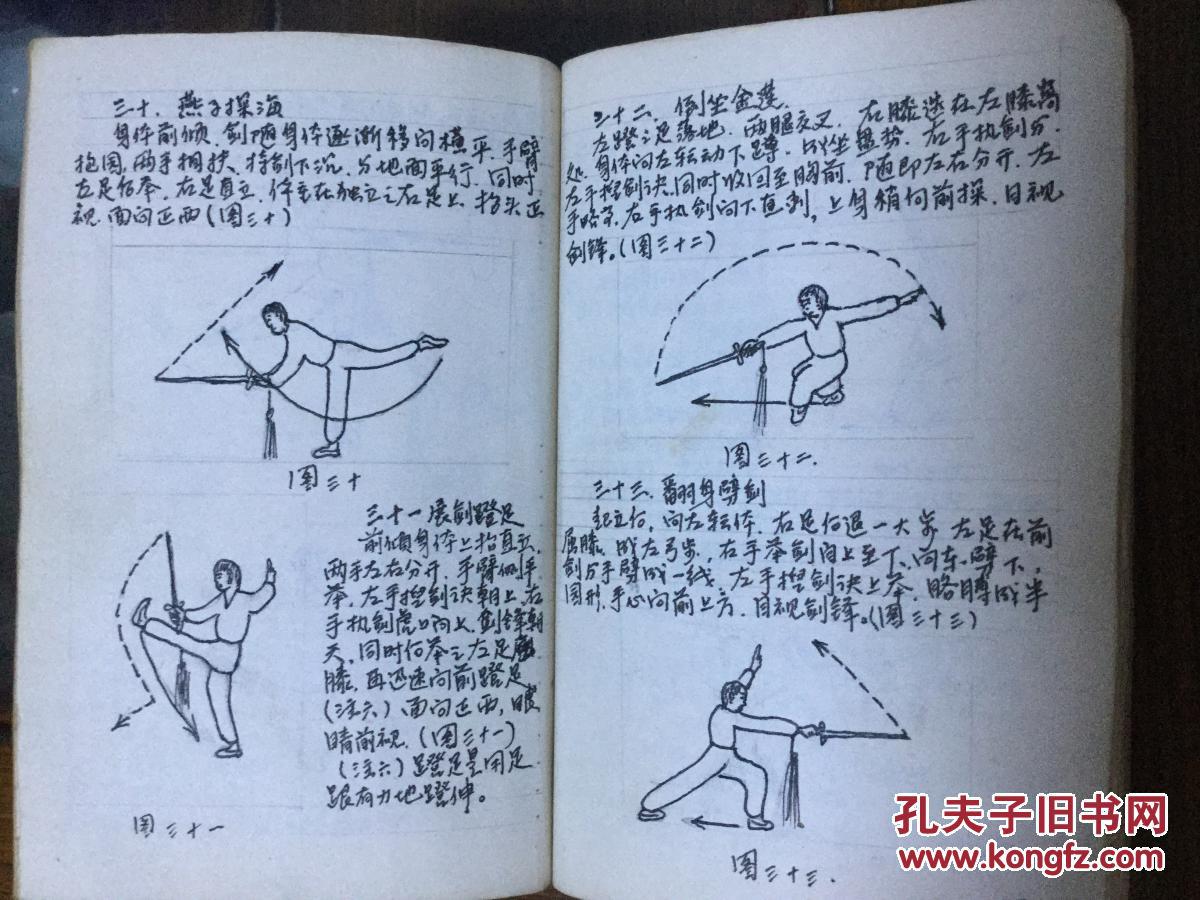 三十、燕子探海
身体前倾，剑随身体逐渐移向横平，手臂
抱圆，两手相扶，持剑下沉，与地面平行，同时
左足后举，右足直立，体重在独立之右足上，抬头正
视，面向正西（图三十）
图三十
三十一 展剑蹬足
前倾身体上抬直立，
两手左右分开，手臂侧平
举，左手捏剑诀朝上，右
手执剑虎口向上，剑锋朝
天，同时后举之左足屈
膝，再迅速向前蹬足
（注六）面向正西，眼
睛前视。（图三十一）
（注六）蹬足是用足
跟有力地蹬伸。
图三十一
三十二、倒坐金莲
左蹬之足落地，两腿交叉，右膝迭在左膝窝
处，身体向左转动下蹲，成坐盘势，右手执剑与
左手捏剑诀，同时收回至胸前，随即左右分开，左
手略高，右手执剑向下直刺，上身稍向前探，目视
剑锋。（图三十二）
图三十二．
三十三、翻身劈剑
起立后，向左转体，右足后退一大步，左足在前
屈膝，成左弓步，右手举剑自上至下，向东劈下，
剑与手臂成一线，左手捏剑诀上举，略臂成半
圆形，手心向前上方，目视剑锋。（图三十三）
图三十三．
孔夫子旧书网
www.kongfz.com